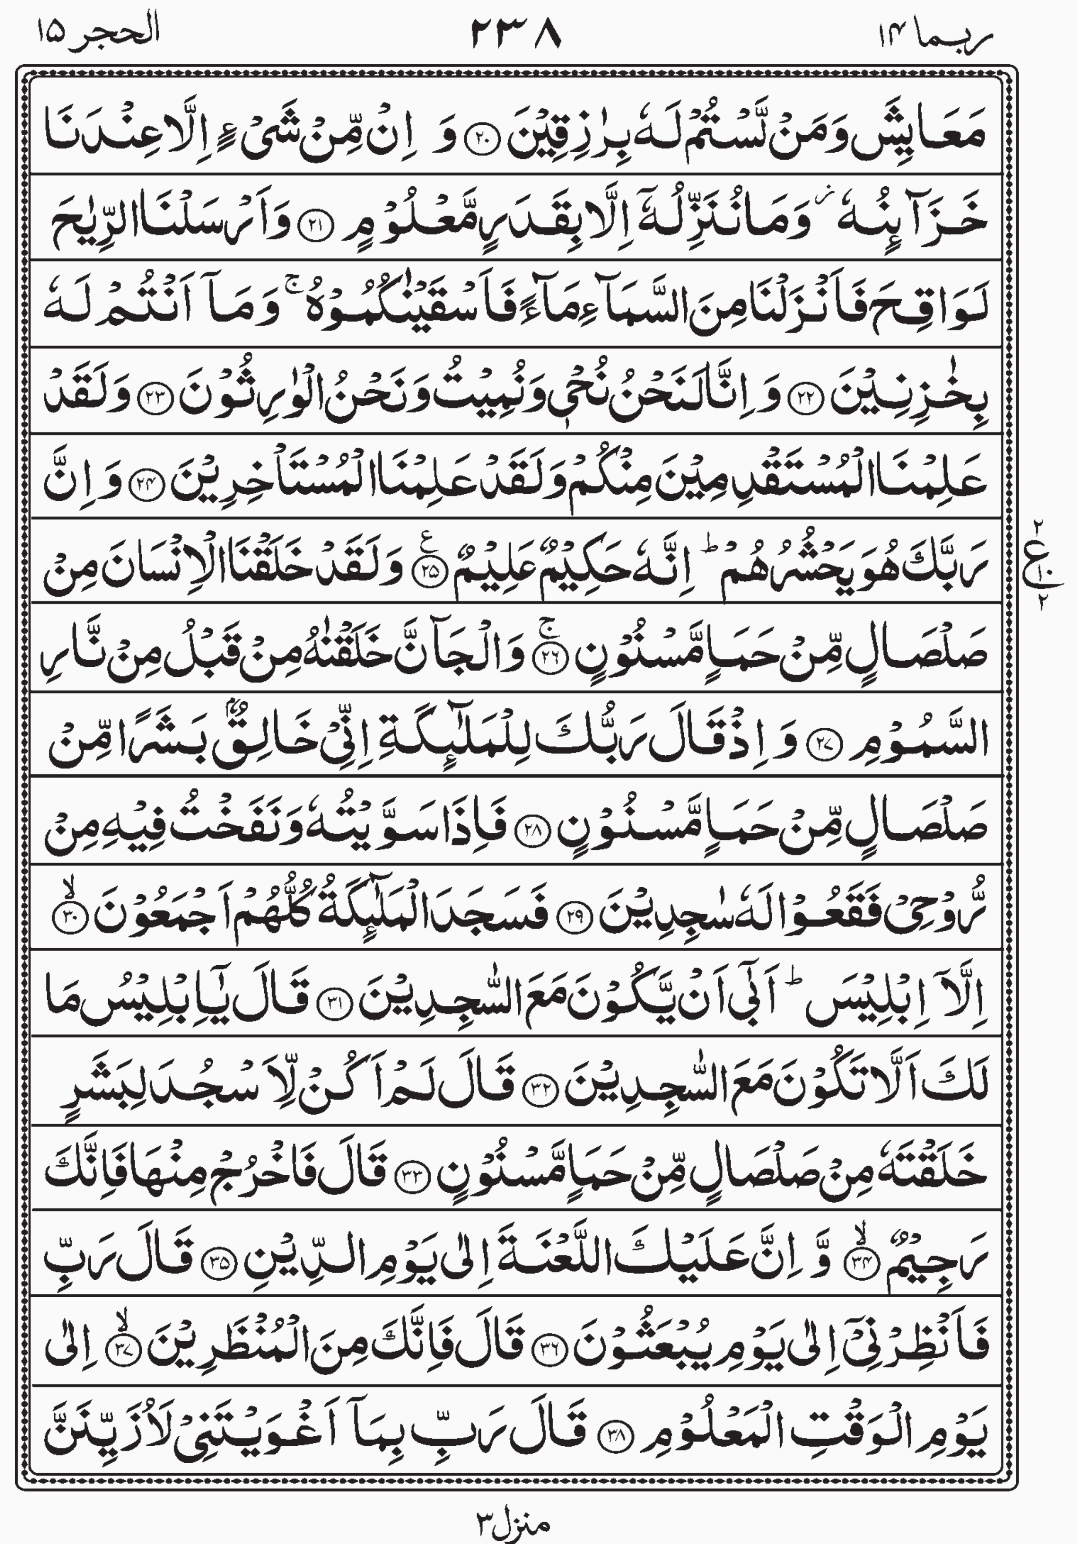 ربما ۱۴ ۲۳۸ الحجر ۱۵
مَعَايِشَ وَمَنْ لَّسْتُمْ لَهٗ بِرٰزِقِيْنَ ﴿۲۰﴾ وَ اِنْ مِّنْ شَىْءٍ اِلَّا عِنْدَنَا
خَزَآئِنُهٗ ۫ وَمَا نُنَزِّلُهٗۤ اِلَّا بِقَدَرٍ مَّعْلُوْمٍ ﴿۲۱﴾ وَاَرْسَلْنَا الرِّيٰحَ
لَوَاقِحَ فَاَنْزَلْنَا مِنَ السَّمَآءِ مَآءً فَاَسْقَيْنٰكُمُوْهُ ۚ وَمَاۤ اَنْتُمْ لَهٗ
بِخٰزِنِيْنَ ﴿۲۲﴾ وَ اِنَّا لَنَحْنُ نُحْىٖ وَنُمِيْتُ وَنَحْنُ الْوٰرِثُوْنَ ﴿۲۳﴾ وَلَقَدْ
عَلِمْنَا الْمُسْتَقْدِمِيْنَ مِنْكُمْ وَلَقَدْ عَلِمْنَا الْمُسْتَاْخِرِيْنَ ﴿۲۴﴾ وَ اِنَّ
رَبَّكَ هُوَ يَحْشُرُهُمْ ؕ اِنَّهٗ حَكِيْمٌ عَلِيْمٌ ﴿۲۵﴾ ع وَلَقَدْ خَلَقْنَا الْاِنْسَانَ مِنْ
۲ ع ۱۰ ۲
صَلْصَالٍ مِّنْ حَمَاٍ مَّسْنُوْنٍ ﴿۲۶﴾ۚ وَالْجَآنَّ خَلَقْنٰهُ مِنْ قَبْلُ مِنْ نَّارِ
السَّمُوْمِ ﴿۲۷﴾ وَ اِذْ قَالَ رَبُّكَ لِلْمَلٰٓئِكَةِ اِنِّىْ خَالِقٌۢ بَشَرًا مِّنْ
صَلْصَالٍ مِّنْ حَمَاٍ مَّسْنُوْنٍ ﴿۲۸﴾ فَاِذَا سَوَّيْتُهٗ وَنَفَخْتُ فِيْهِ مِنْ
رُّوْحِىْ فَقَعُوْا لَهٗ سٰجِدِيْنَ ﴿۲۹﴾ فَسَجَدَ الْمَلٰٓئِكَةُ كُلُّهُمْ اَجْمَعُوْنَ ﴿۳۰﴾ۙ
اِلَّاۤ اِبْلِيْسَ ؕ اَبٰٓى اَنْ يَّكُوْنَ مَعَ السّٰجِدِيْنَ ﴿۳۱﴾ قَالَ يٰۤاِبْلِيْسُ مَا
لَكَ اَلَّا تَكُوْنَ مَعَ السّٰجِدِيْنَ ﴿۳۲﴾ قَالَ لَمْ اَكُنْ لِّاَسْجُدَ لِبَشَرٍ
خَلَقْتَهٗ مِنْ صَلْصَالٍ مِّنْ حَمَاٍ مَّسْنُوْنٍ ﴿۳۳﴾ قَالَ فَاخْرُجْ مِنْهَا فَاِنَّكَ
رَجِيْمٌ ﴿۳۴﴾ۙ وَّ اِنَّ عَلَيْكَ اللَّعْنَةَ اِلٰى يَوْمِ الدِّيْنِ ﴿۳۵﴾ قَالَ رَبِّ
فَاَنْظِرْنِىْۤ اِلٰى يَوْمِ يُبْعَثُوْنَ ﴿۳۶﴾ قَالَ فَاِنَّكَ مِنَ الْمُنْظَرِيْنَ ﴿۳۷﴾ۙ اِلٰى
يَوْمِ الْوَقْتِ الْمَعْلُوْمِ ﴿۳۸﴾ قَالَ رَبِّ بِمَاۤ اَغْوَيْتَنِىْ لَاُزَيِّنَنَّ
منزل ۳